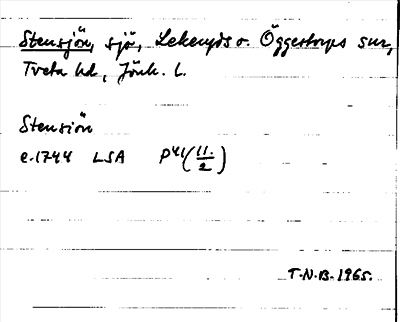 Stensjön, sjö, Lekeryds o. Öggestorps snr,
Tveta hd, Jönk. l.
Stensiön
e.1744 LSA P41(11/2)
T.N.B. 1965.